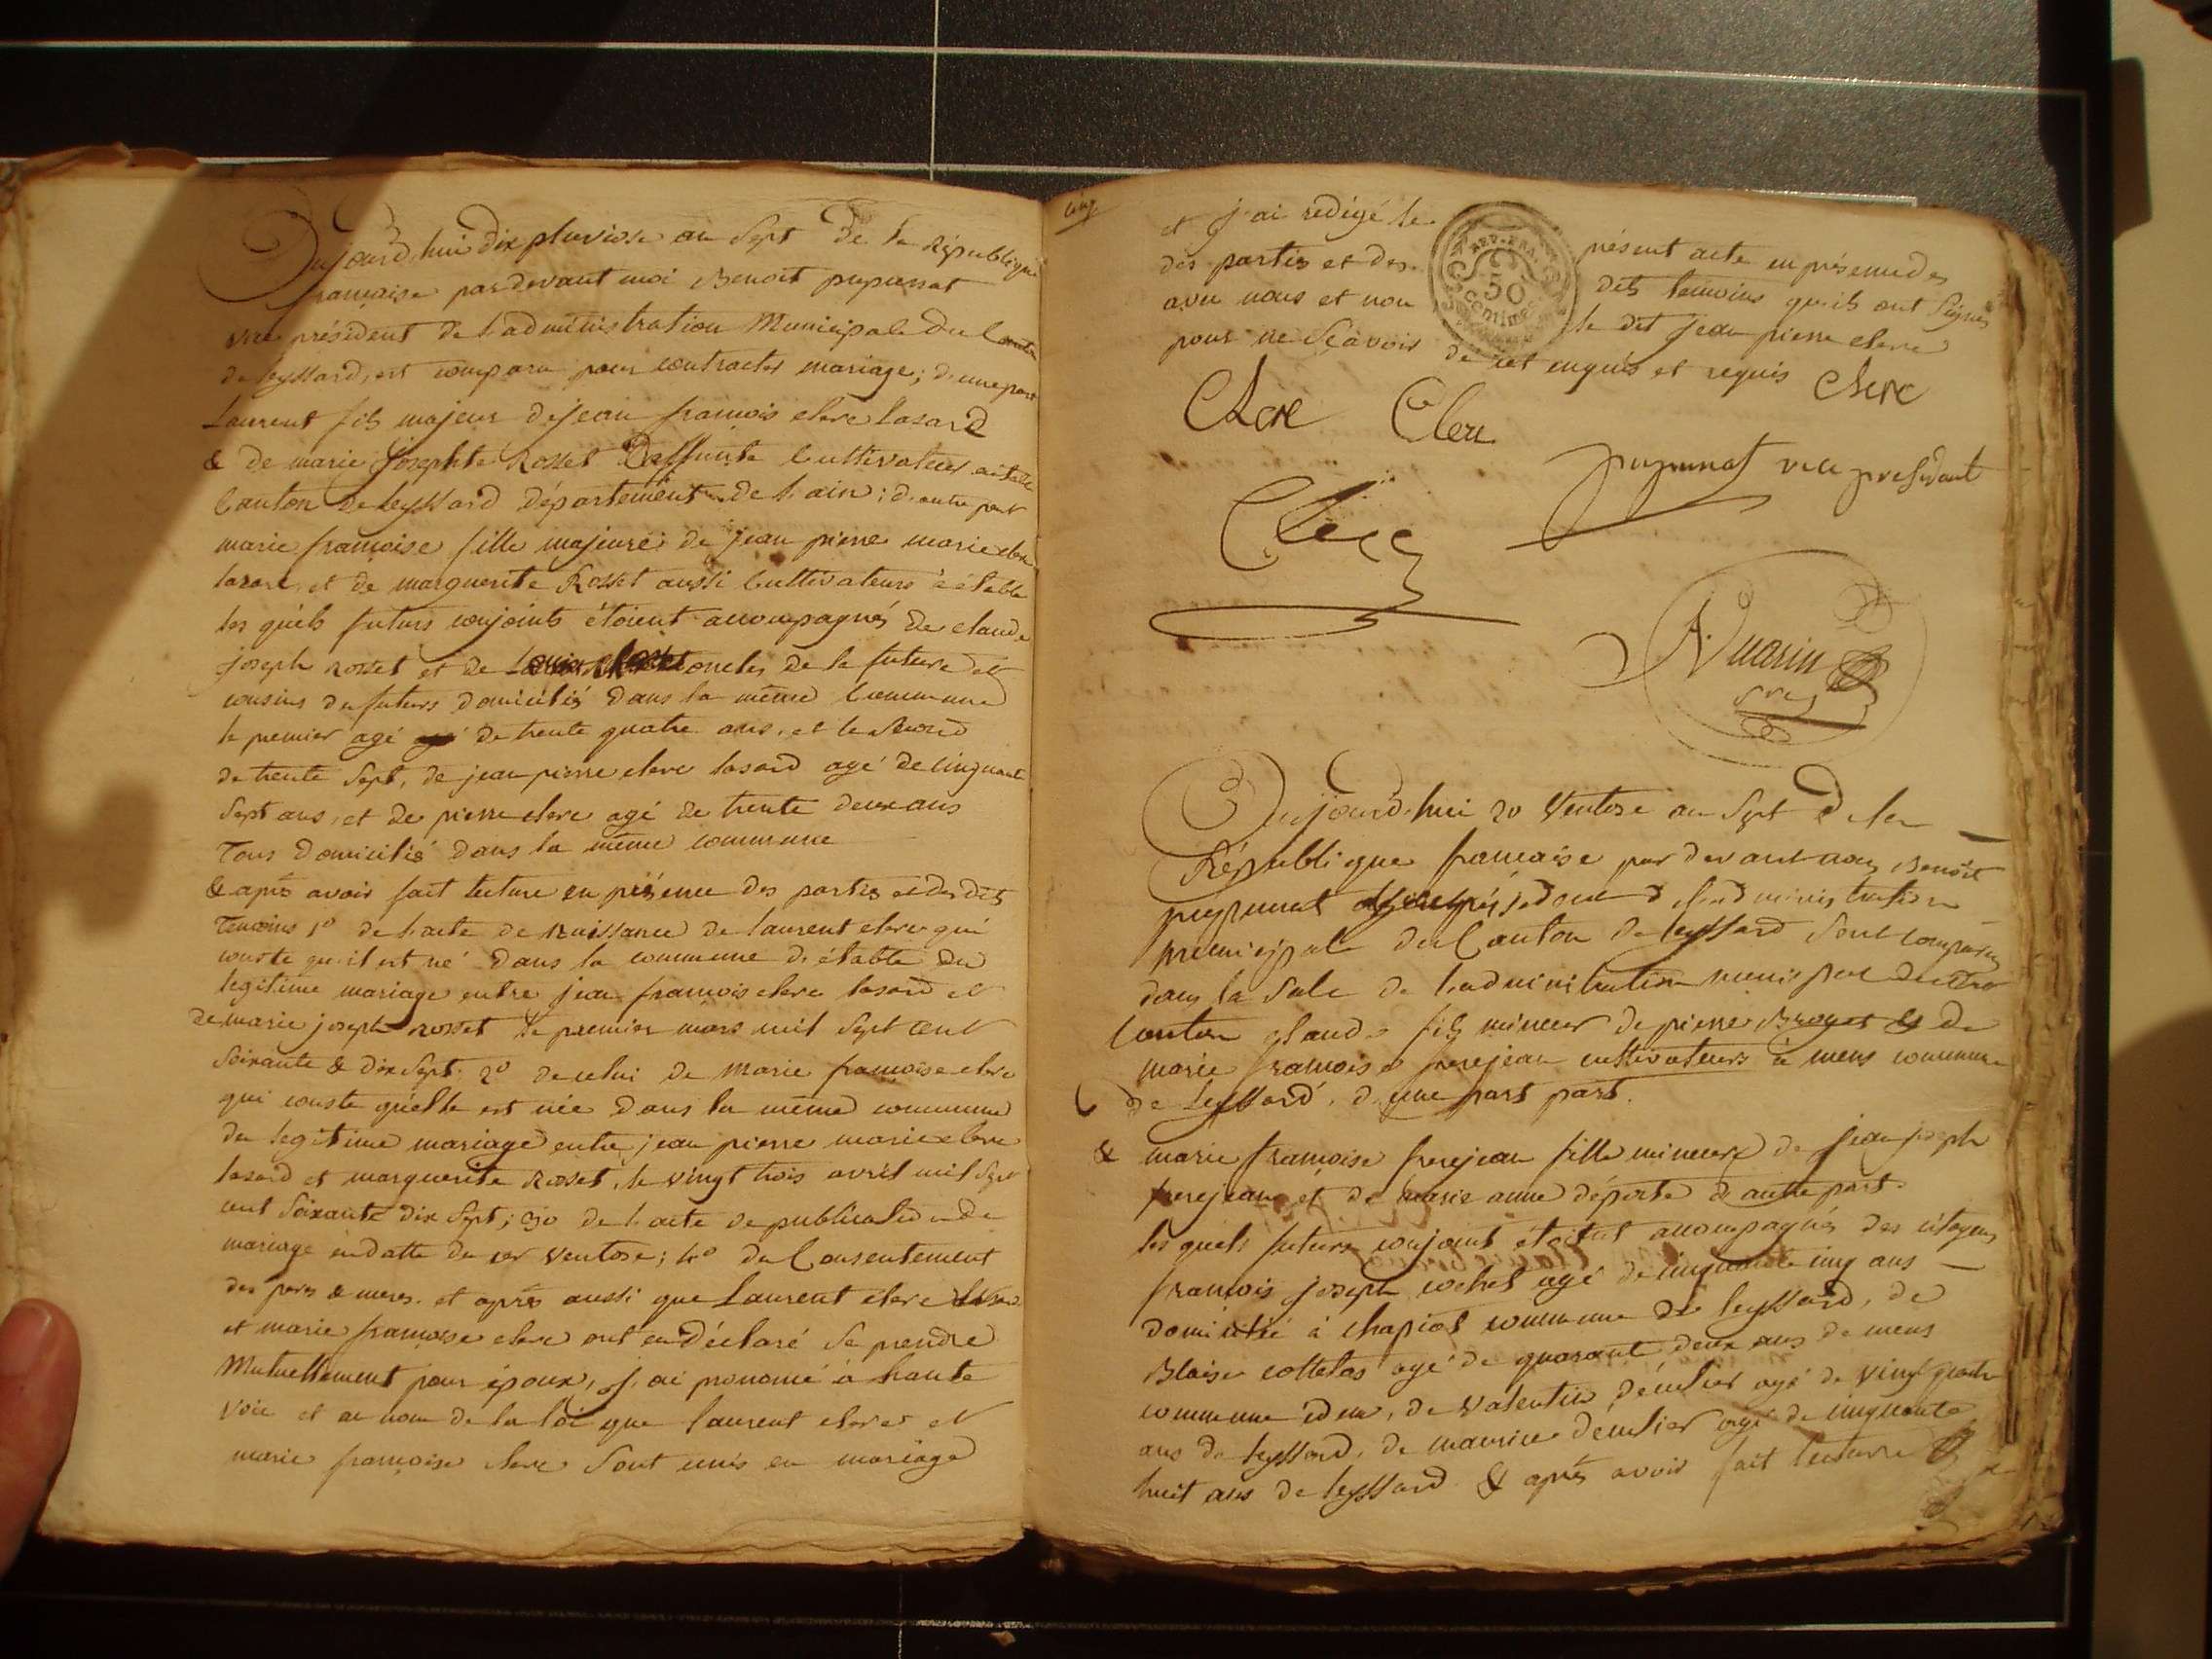 Aujourd'hui dix pluviose an Sept De la République
française pardevant moi Benoit pupunat
vice président de l'administration Municipale Du Canton
de leyssard, est comparu pour contracter mariage; d'une part
Laurent fils majeur de jean françois clerc lasard
& de marie josephte Rosset Deffunte Cultivateurs a étable
Canton de leyssard département de l'ain; d'autre part
marie françoise fille majeure de jean pierre marie clerc
lasard et de marguerite Rosset aussi Cultivateurs à étable
les quels futurs conjoints étoient accompagnés de claude
joseph rosset et de oncles de la future et
cousins du futurs domiciliés dans la même Commune
le premier agé de trente quatre ans, et le second
de trente Sept, de jean pierre clerc lasard agé de cinquante
Sept ans, et de pierre clerc agé de trente deux ans
Tous domiciliés dans la même commune
& après avoir fait lecture en présence des parties et des dits
Temoins 1º de l'acte de Naissance de laurent clerc qui
conste qu'il est né dans la commune d'étable du
legitime mariage entre jean françois clerc lasard et
de marie joseph rosset le premier mars mil Sept cent
Soixante & dix Sept. 2º de celui de Marie françoise clerc
qui conste qu'elle est née dans la même commune
du legitime mariage entre jean pierre marie clerc
lasard et marguerite Rosset, le vingt trois avril mil Sept
cent Soixante dix Sept; 3º de l'acte de publication de
mariage en datte du 1er Ventose; 4º du Consentement
des peres & meres. et après aussi que Laurent clerc
et marie françoise clerc ont en déclaré Se prendre
Mutuellement pour époux, j'ai prononcé à haute
voix et au nom de la loi que laurent clerc et
marie françoise clerc Sont unis en mariage
et j'ai redigé le présent acte en présence des
des parties et des dits temoins qu'ils ont Signés
avec nous et non le dit jean pierre clerc
pour ne Sçavoir de ce enquis et requis
Clerc Clerc Clerc
pupunat vice president
Clerc
REP. FRA.
50
centimes
Aujourd'hui 20 Ventose an Sept De la
République francaise par devant nous Benoit
pupunat président de l'administration
municipale du Canton de leyssard Sont comparus
dans la Sale de l'administration municipale du dit
Canton Claude fils mineur de pierre Brogat et de
marie françoise frerejean cultivateurs à mens commune
de leyssard, d'une part part.
& marie françoise frerejean fille mineure de jean joseph
frerejean et de marie anne déporte d'autre part.
les quels futurs conjoint étoient accompagnés des citoyens
françois joseph cochet agé de cinquante cinq ans
domicilié à chapiat commune de leyssard, de
Blaise cottelas agé de quarante deux ans de mens
commune idem, de Valentin agé de vingt quatre
ans de leyssard, de maurice agé de cinquante
huit ans de leyssard & après avoir fait lecture